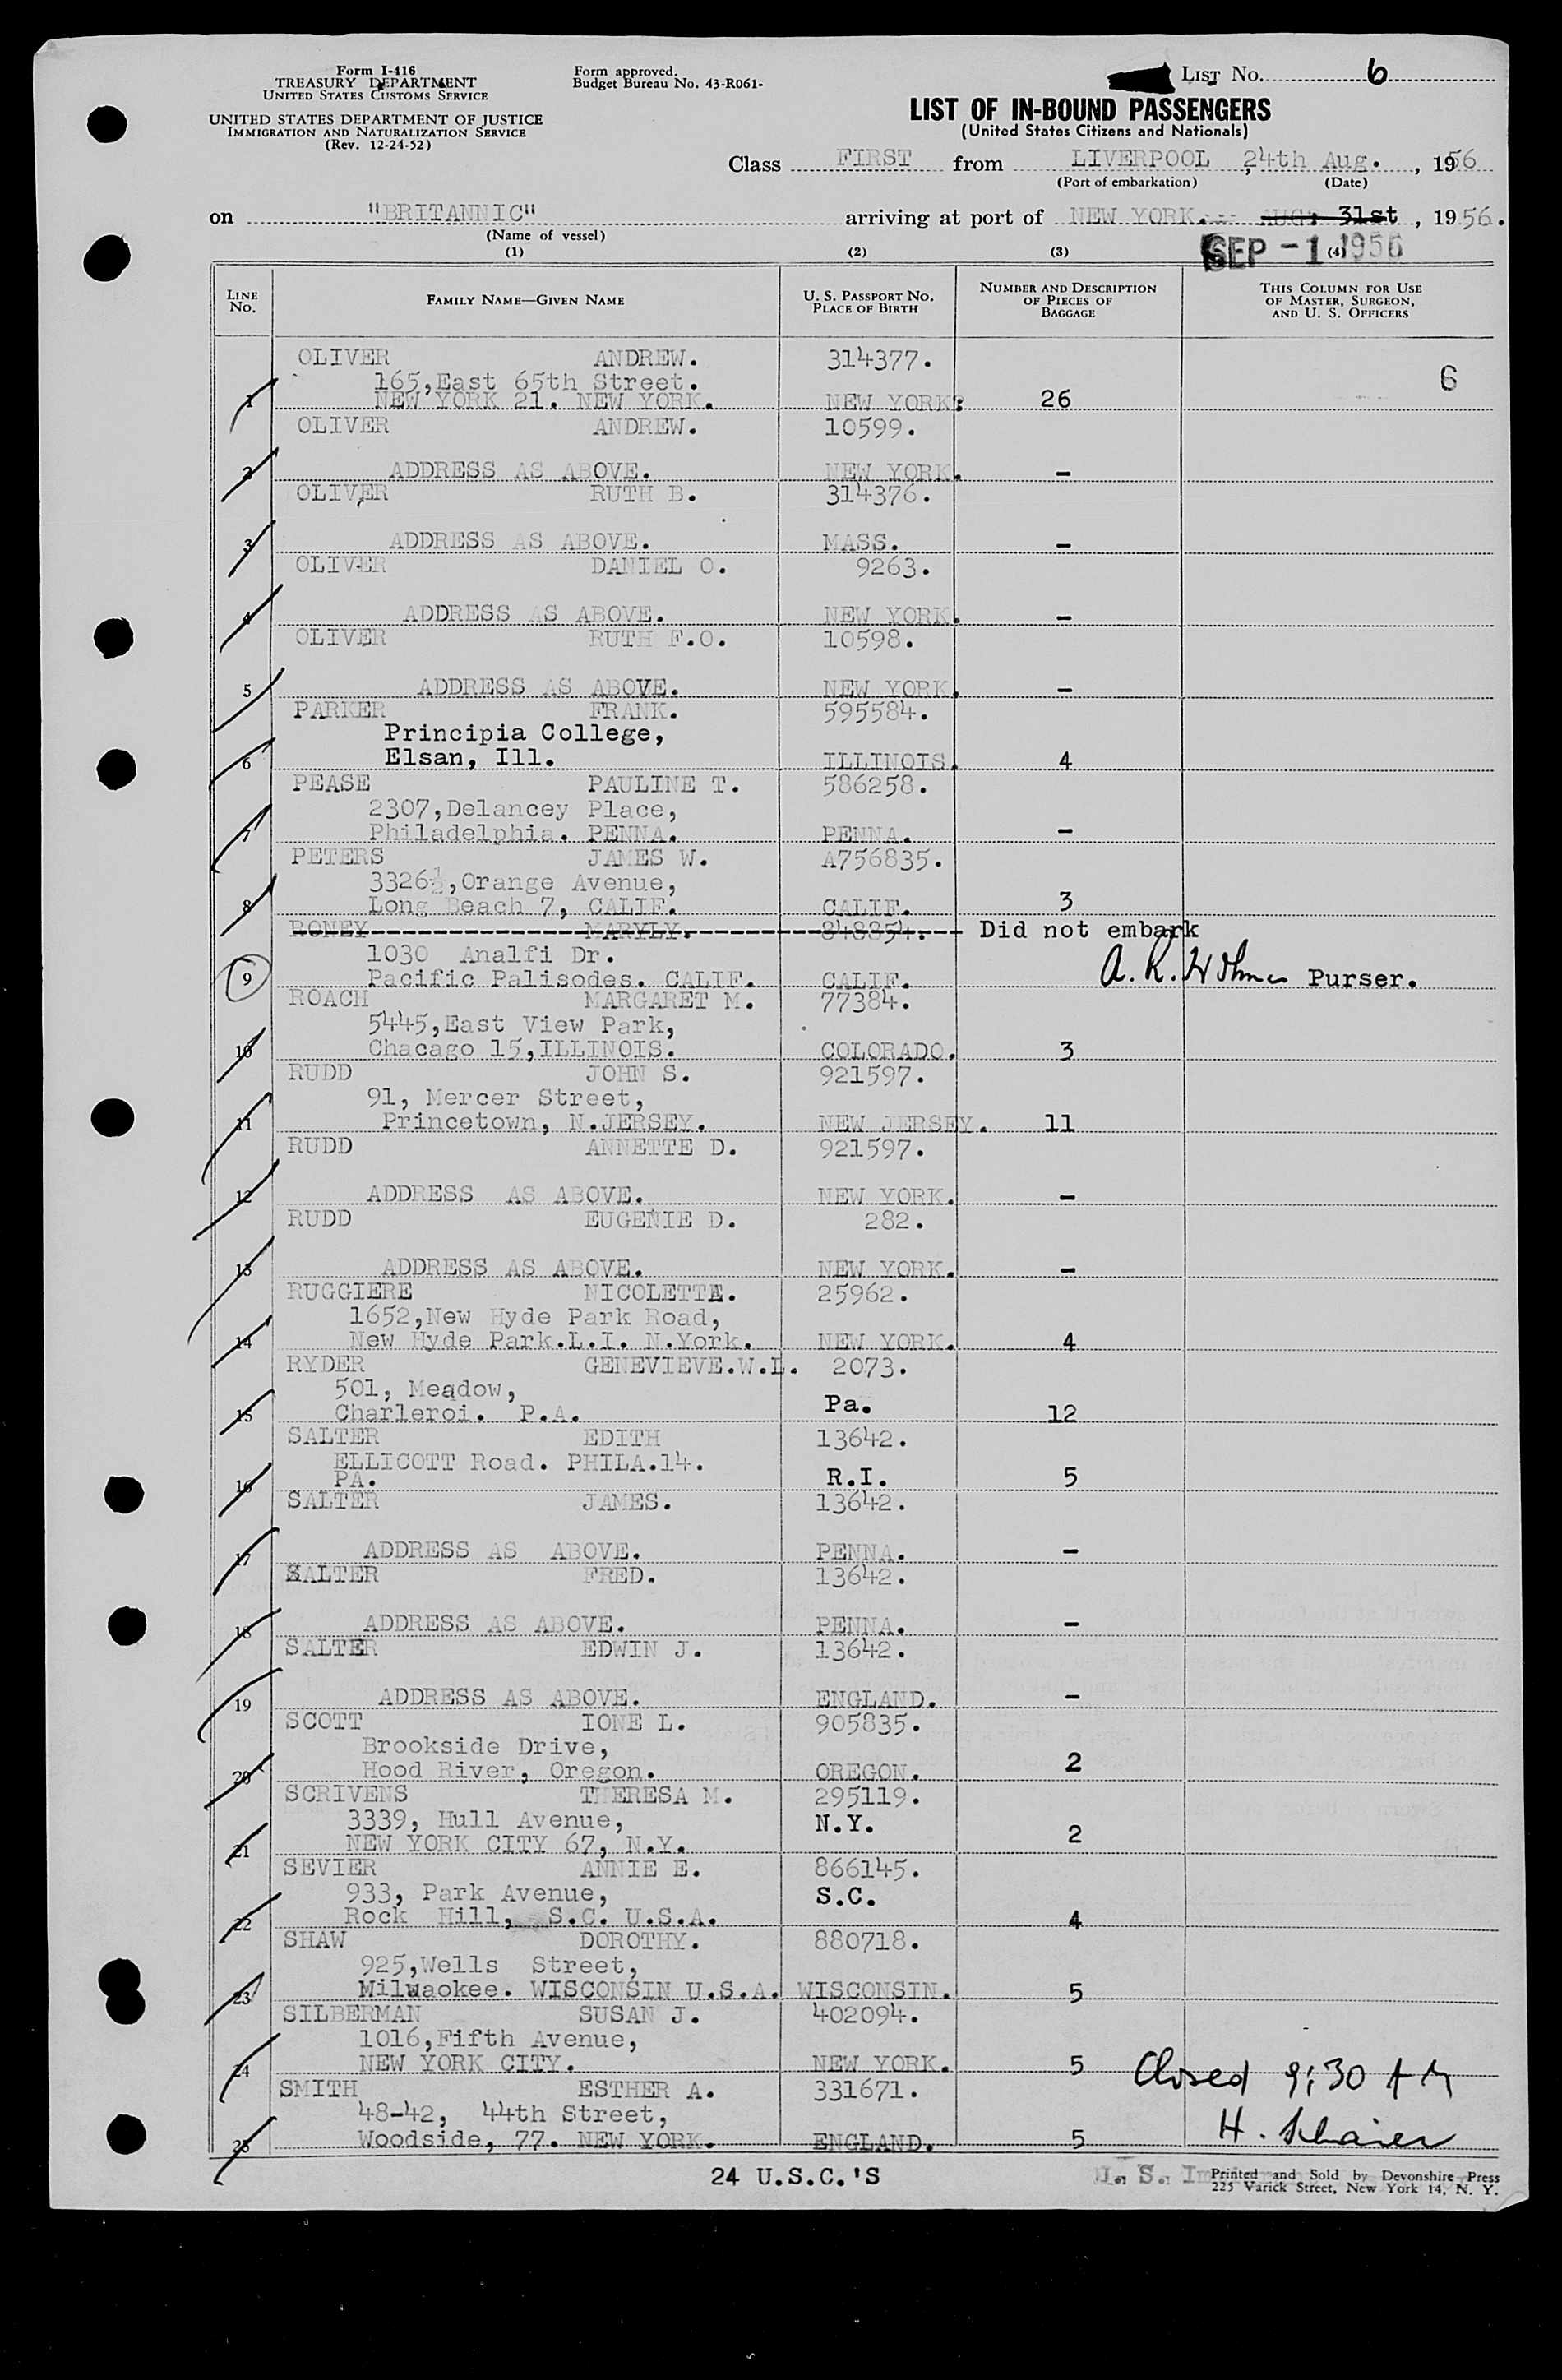 Form I-416
TREASURY DEPARTMENT
UNITED STATES CUSTOMS SERVICE
UNITED STATES DEPARTMENT OF JUSTICE
IMMIGRATION AND NATURALIZATION SERVICE
(Rev. 12-24-52)
Form approved.
Budget Bureau No. 43-R061-
LIST No. 6
LIST OF IN-BOUND PASSENGERS
(United States Citizens and Nationals)
Class FIRST from LIVERPOOL, 24th Aug., 1956
(Port of embarkation) (Date)
on "BRITANNIC" arriving at port of NEW YORK. AUG: 31st, 1956.
(Name of vessel)
SEP -1 1956
(1) (2) (3) (4)
LINE No. FAMILY NAME—GIVEN NAME U. S. PASSPORT No. PLACE OF BIRTH NUMBER AND DESCRIPTION OF PIECES OF BAGGAGE THIS COLUMN FOR USE OF MASTER, SURGEON, AND U. S. OFFICERS
OLIVER ANDREW. 314377.
165,East 65th Street. 6
1 NEW YORK 21. NEW YORK. NEW YORK: 26
OLIVER ANDREW. 10599.
2 ADDRESS AS ABOVE. NEW YORK. -
OLIVER RUTH B. 314376.
3 ADDRESS AS ABOVE. MASS. -
OLIVER DANIEL O. 9263.
4 ADDRESS AS ABOVE. NEW YORK. -
OLIVER RUTH F.O. 10598.
5 ADDRESS AS ABOVE. NEW YORK. -
PARKER FRANK. 595584.
Principia College,
6 Elsan, Ill. ILLINOIS. 4
PEASE PAULINE T. 586258.
2307,Delancey Place,
7 Philadelphia. PENNA. PENNA. -
PETERS JAMES W. A756835.
3326½,Orange Avenue,
8 Long Beach 7, CALIF. CALIF. 3
RONEY MARYLY. 848354. Did not embark
1030 Analfi Dr.
9 Pacific Palisodes. CALIF. CALIF. A. R. Purser.
ROACH MARGARET M. 77384.
5445,East View Park,
10 Chacago 15,ILLINOIS. COLORADO. 3
RUDD JOHN S. 921597.
91, Mercer Street,
11 Princetown, N.JERSEY. NEW JERSEY. 11
RUDD ANNETTE D. 921597.
12 ADDRESS AS ABOVE. NEW YORK. -
RUDD EUGENIE D. 282.
13 ADDRESS AS ABOVE. NEW YORK. -
RUGGIERE NICOLETTA. 25962.
1652,New Hyde Park Road,
14 New Hyde Park.L.I. N.York. NEW YORK. 4
RYDER GENEVIEVE.W.L. 2073.
501, Meadow,
15 Charleroi. P.A. Pa. 12
SALTER EDITH 13642.
ELLICOTT Road. PHILA.14.
16 PA. R.I. 5
SALTER JAMES. 13642.
17 ADDRESS AS ABOVE. PENNA. -
SALTER FRED. 13642.
18 ADDRESS AS ABOVE. PENNA. -
SALTER EDWIN J. 13642.
19 ADDRESS AS ABOVE. ENGLAND. -
SCOTT IONE L. 905835.
Brookside Drive,
20 Hood River, Oregon. OREGON. 2
SCRIVENS THERESA M. 295119.
3339, Hull Avenue, N.Y.
21 NEW YORK CITY 67, N.Y. 2
SEVIER ANNIE E. 866145.
933, Park Avenue, S.C.
22 Rock Hill, S.C. U.S.A. 4
SHAW DOROTHY. 880718.
925,Wells Street,
23 Milwaokee. WISCONSIN U.S.A. WISCONSIN. 5
SILBERMAN SUSAN J. 402094.
1016,Fifth Avenue,
24 NEW YORK CITY. NEW YORK. 5 Closed 9:30 AM
SMITH ESTHER A. 331671.
48-42, 44th Street, H.
25 Woodside, 77. NEW YORK. ENGLAND. 5
24 U.S.C.'S
U. S.
Printed and Sold by Devonshire Press
225 Varick Street, New York 14, N. Y.